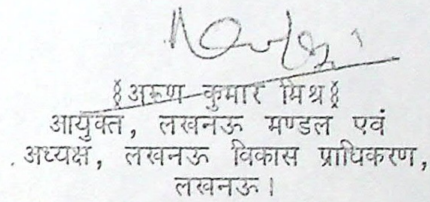 §अरुण कुमार मिश्र§
आयुक्त, लखनऊ मण्डल एवं
अध्यक्ष, लखनऊ विकास प्राधिकरण,
लखनऊ।